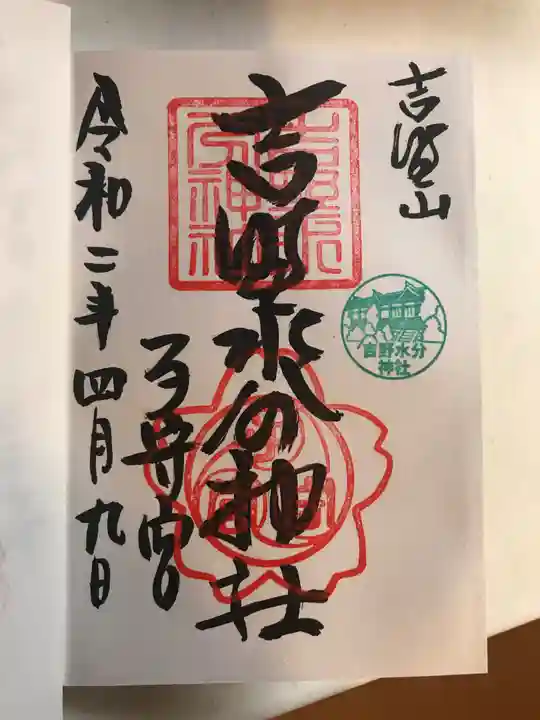 吉野山
吉野水分神社
子守宮
令和二年四月九日
吉野水分
神社